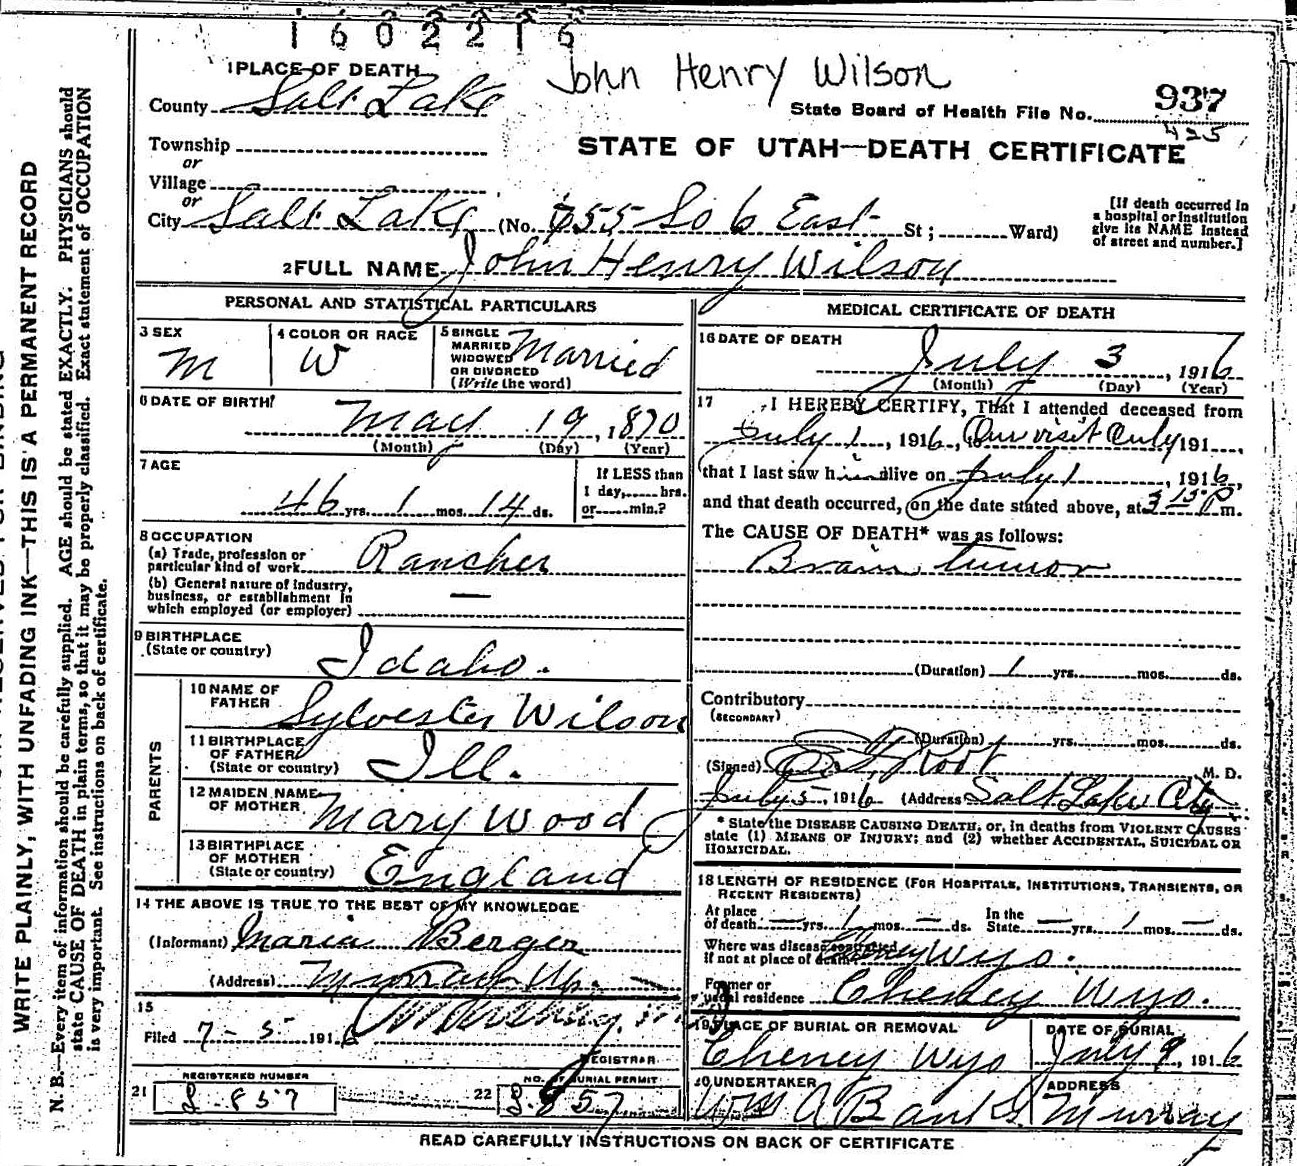 1602216
John Henry Wilson
1 PLACE OF DEATH
County Salt Lake
State Board of Health File No. 937
425
Township
or
Village
or
STATE OF UTAH—DEATH CERTIFICATE
City Salt Lake (No. 755 So 6 East St; Ward)
[If death occurred in
a hospital or institution
give its NAME instead
of street and number.]
2 FULL NAME John Henry Wilson
PERSONAL AND STATISTICAL PARTICULARS
3 SEX
M
4 COLOR OR RACE
W
5 SINGLE
MARRIED
WIDOWED
OR DIVORCED
(Write the word)
Married
6 DATE OF BIRTH
May 19, 1870
(Month) (Day) (Year)
7 AGE
46 yrs. 1 mos. 14 ds.
If LESS than
1 day, hrs.
or min.?
8 OCCUPATION
(a) Trade, profession or
particular kind of work Rancher
(b) General nature of industry,
business, or establishment in
which employed (or employer) —
9 BIRTHPLACE
(State or country) Idaho.
PARENTS
10 NAME OF
FATHER Sylvester Wilson
11 BIRTHPLACE
OF FATHER
(State or country) Ill.
12 MAIDEN NAME
OF MOTHER Mary Wood
13 BIRTHPLACE
OF MOTHER
(State or country) England
14 THE ABOVE IS TRUE TO THE BEST OF MY KNOWLEDGE
(Informant) Maria Berger
(Address) Murray
15
Filed 7-5 1916
REGISTRAR
21 REGISTERED NUMBER
L-857
22 NO. OF BURIAL PERMIT
L-857
MEDICAL CERTIFICATE OF DEATH
16 DATE OF DEATH
July 3, 1916
(Month) (Day) (Year)
17 I HEREBY CERTIFY, That I attended deceased from
July 1, 1916, to One visit only 191
that I last saw him alive on July 1 1916,
and that death occurred, on the date stated above, at 3 15 P m.
The CAUSE OF DEATH* was as follows:
Brain tumor
(Duration) 1 yrs. mos. ds.
Contributory
(SECONDARY)
(Duration) yrs. mos. ds.
(Signed) Root M. D.
July 5, 1916 (Address Salt Lake City
* State the DISEASE CAUSING DEATH, or, in deaths from VIOLENT CAUSES
state (1) MEANS OF INJURY; and (2) whether ACCIDENTAL, SUICIDAL OR
HOMICIDAL.
18 LENGTH OF RESIDENCE (FOR HOSPITALS, INSTITUTIONS, TRANSIENTS, OR
RECENT RESIDENTS)
At place
of death — yrs. 1 mos. — ds.
In the
State — yrs. 1 mos. — ds.
Where was disease contracted
if not at place of death Cheney Wyo.
Former or
usual residence Cheney Wyo.
19 PLACE OF BURIAL OR REMOVAL
Cheney Wyo
DATE OF BURIAL
July 9, 1916
20 UNDERTAKER
Wm A Banks
ADDRESS
Murray
READ CAREFULLY INSTRUCTIONS ON BACK OF CERTIFICATE
WRITE PLAINLY, WITH UNFADING INK—THIS IS A PERMANENT RECORD
N. B.—Every item of information should be carefully supplied. AGE should be stated EXACTLY. PHYSICIANS should
state CAUSE OF DEATH in plain terms, so that it may be properly classified. Exact statement of OCCUPATION
is very important. See instructions on back of certificate.